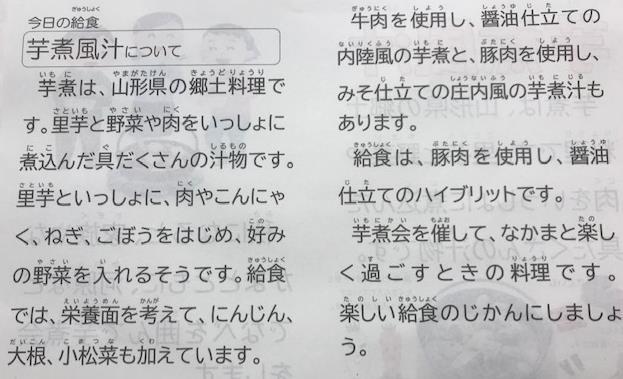 今日の給食
芋煮風汁について
芋煮は、山形県の郷土料理で
す。里芋と野菜や肉をいっしょに
煮込んだ具だくさんの汁物です。
里芋といっしょに、肉やこんにゃ
く、ねぎ、ごぼうをはじめ、好み
の野菜を入れるそうです。給食
では、栄養面を考えて、にんじん、
大根、小松菜も加えています。
牛肉を使用し、醤油仕立ての
内陸風の芋煮と、豚肉を使用し、
みそ仕立ての庄内風の芋煮汁も
あります。
給食は、豚肉を使用し、醤油
仕立てのハイブリットです。
芋煮会を催して、なかまと楽し
く過ごすときの料理です。
楽しい給食のじかんにしましょ
う。